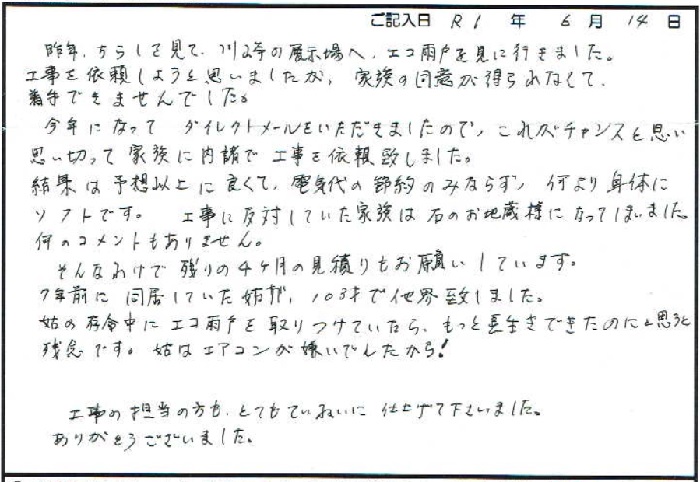 ご記入日 R1 年 6 月 14 日
昨年、ちらしを見て、川口の展示場へ、エコ雨戸を見に行きました。
工事を依頼しようと思いましたが、家族の同意が得られなくて、
着手できませんでした。
今年になって ダイレクトメールをいただきましたので、これがチャンスと思い
思い切って家族に内諸で工事を依頼致しました。
結果は予想以上に良くて、電気代の節約のみならず、何より身体に
ソフトです。 工事に反対していた家族は石のお地蔵様になってしまいました。
何のコメントもありません。
そんなわけで残りの4ヶ月の見積りもお願いしています。
7年前に同居していた姑が、103才で他界致しました。
姑の存命中にエコ雨戸を取りつけていたら、もっと長生きできたのにと思うと
残念です。姑はエアコンが嫌いでしたから!
工事の担当の方も、とてもていねいに 仕上げて下さいました。
ありがとうございました。